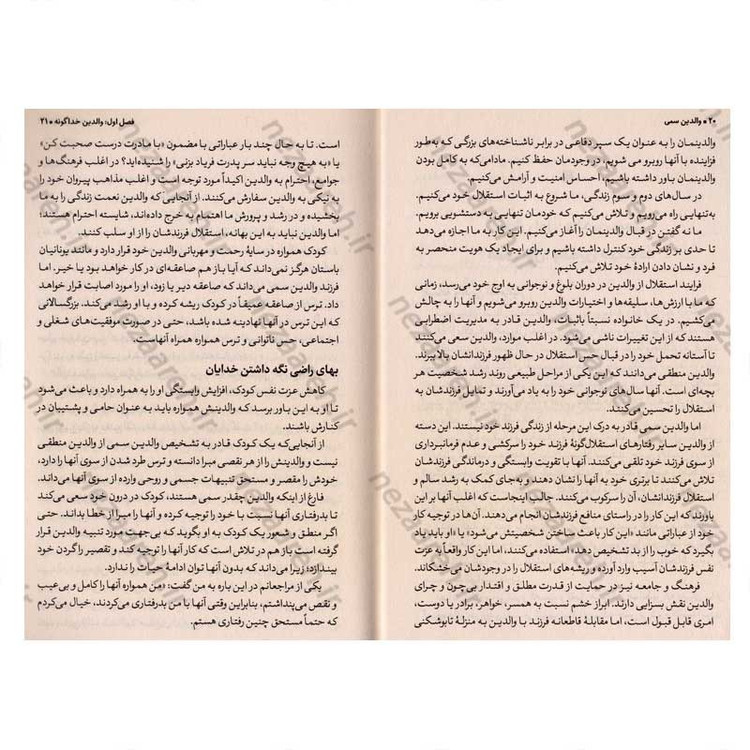 ۲۰ • والدین سمی
والدینمان را به عنوان یک سپر دفاعی در برابر ناشناخته‌های بزرگی که به‌طور
فزاینده با آنها روبرو می شویم، در وجودمان حفظ کنیم. مادامی‌که به کامل بودن
والدینمان باور داشته باشیم، احساس امنیت و آرامش می‌کنیم.
در سال‌های دوم و سوم زندگی، ما شروع به اثبات استقلال خود می‌کنیم.
به‌تنهایی راه می‌رویم و تلاش می‌کنیم که خودمان تنهایی به دستشویی برویم.
ما نه گفتن در قبال والدینمان را آغاز می‌کنیم. این کار به ما اجازه می‌دهد
تا حدی بر زندگی خود کنترل داشته باشیم و برای ایجاد یک هویت منحصر به
فرد و نشان دادن ارادهٔ خود تلاش می‌کنیم.
فرایند استقلال از والدین در دوران بلوغ و نوجوانی به اوج خود می‌رسد، زمانی
که ما با ارزش‌ها، سلیقه‌ها و اختیارات والدین روبرو می‌شویم و آنها را به چالش
می‌کشیم. در یک خانواده نسبتاً باثبات، والدین قادر به مدیریت اضطرابی
هستند که از این تغییرات ناشی می‌شود. در اغلب موارد، والدین سعی می‌کنند
تا آستانه تحمل خود را در قبال حس استقلال در حال ظهور فرزندانشان بالا ببرند.
والدین منطقی می‌دانند که این یکی از مراحل طبیعی روند رشد شخصیت هر
بچه‌ای است. آنها سال‌های نوجوانی خود را به یاد می‌آورند و تمایل فرزندانشان به
استقلال را تحسین می‌کنند.
اما والدین سمی قادر به درک این مرحله از زندگی فرزند خود نیستند. این دسته
از والدین سایر رفتارهای استقلال‌گونهٔ فرزند خود را سرکشی و عدم فرمانبرداری
از سوی فرزند خود تلقی می‌کنند. آنها با تقویت وابستگی و درماندگی فرزندشان
تلاش می‌کنند تا برتری خود را به آنها نشان دهند و به‌جای کمک به رشد سالم و
استقلال فرزندانشان، آن را سرکوب می‌کنند. جالب اینجاست که اغلب آنها بر این
باورند که این کار را در راستای منافع فرزندشان انجام می‌دهند. آنها در توجیه کار
خود از عباراتی مانند «این کار باعث ساختن شخصیتش می‌شود» یا «او باید یاد
بگیرد که خوب را از بد تشخیص دهد» استفاده می‌کنند، اما این کار واقعاً به عزت
نفس فرزندشان آسیب وارد آورده و ریشه‌های استقلال را در وجودشان می‌خشکاند.
فرهنگ و جامعه نیز در حمایت از قدرت مطلق و اقتدار بی‌چون و چرای
والدین نقش بسزایی دارند. ابراز خشم نسبت به همسر، خواهر، برادر یا دوست،
امری قابل قبول است، اما مقابلهٔ قاطعانه فرزند با والدین به منزلهٔ تابوشکنی
فصل اول: والدین خداگونه • ۲۱
است. تا به حال چند بار عباراتی با مضمون «با مادرت درست صحبت کن»
یا «به هیچ وجه نباید سر پدرت فریاد بزنی» را شنیده‌اید؟ در اغلب فرهنگ‌ها و
جوامع، احترام به والدین اکیداً مورد توجه است و اغلب مذاهب پیروان خود را
به نیکی به والدین سفارش می‌کنند. از آنجایی که والدین نعمت زندگی را به ما
بخشیده و در رشد و پرورش ما اهتمام به خرج داده‌اند، شایسته احترام هستند؛
اما والدین نباید به این بهانه، استقلال فرزندشان را از او سلب کنند.
کودک همواره در سایهٔ رحمت و مهربانی والدین خود قرار دارد و مانند یونانیان
باستان هرگز نمی‌داند که آیا باز هم صاعقه‌ای در کار خواهد بود یا خیر. اما
فرزند والدین سمی می‌داند که صاعقه دیر یا زود، او را مورد اصابت قرار خواهد
داد. ترس از صاعقه عمیقاً در کودک ریشه کرده و با او رشد می‌کند. بزرگسالانی
که این ترس در آنها نهادینه شده باشد، حتی در صورت موفقیت‌های شغلی و
اجتماعی، حس ناتوانی و ترس همواره همراه آنهاست.
بهای راضی نگه داشتن خدایان
کاهش عزت نفس کودک، افزایش وابستگی او را به همراه دارد و باعث می‌شود
تا او به این باور برسد که والدینش همواره باید به عنوان حامی و پشتیبان در
کنارش باشند.
از آنجایی‌که یک کودک قادر به تشخیص والدین سمی از والدین منطقی
نیست و والدینش را از هر نقصی مبرا دانسته و ترس طرد شدن از سوی آنها را دارد،
خودش را مقصر و مستحق تنبیهات جسمی و روحی وارده از سوی آنها می‌داند.
فارغ از اینکه والدین چقدر سمی هستند، کودک در درون خود سعی می‌کند
تا بدرفتاری آنها نسبت به خود را توجیه کرده و آنها را مبرا از خطا بداند.
اگر منطق و شعور یک کودک به او بگوید که بی‌جهت مورد تنبیه والدین قرار
گرفته است باز هم در تلاش است که کار آنها را توجیه کند و تقصیر را گردن خود
بیندازد؛ زیرا می‌داند که بدون آنها توان ادامهٔ حیات را ندارد.
یکی از مراجعانم در این باره به من گفت: «من همواره آنها را کامل و بی‌عیب
و نقص می‌پنداشتم، بنابراین وقتی آنها با من بدرفتاری می‌کردند، خیال می‌کردم
که حتماً مستحق چنین رفتاری هستم.
nezaareh.ir